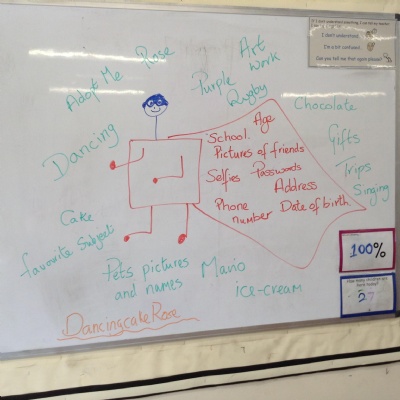 If I don't understand something, I can tell my teacher
I don't understand.
I'm a bit confused.
Can you tell me that again please?
Adopt Me
Rose
Purple
Art
work
Rugby
Chocolate
Dancing
Gifts
Trips
Singing
School.
Age
Pictures of friends
Selfies
Passwords
Address
Phone
number
Date of birth.
Cake
favourite Subject
Pets pictures
and names
Mario
ice-cream
DancingcakeRose
100%
27